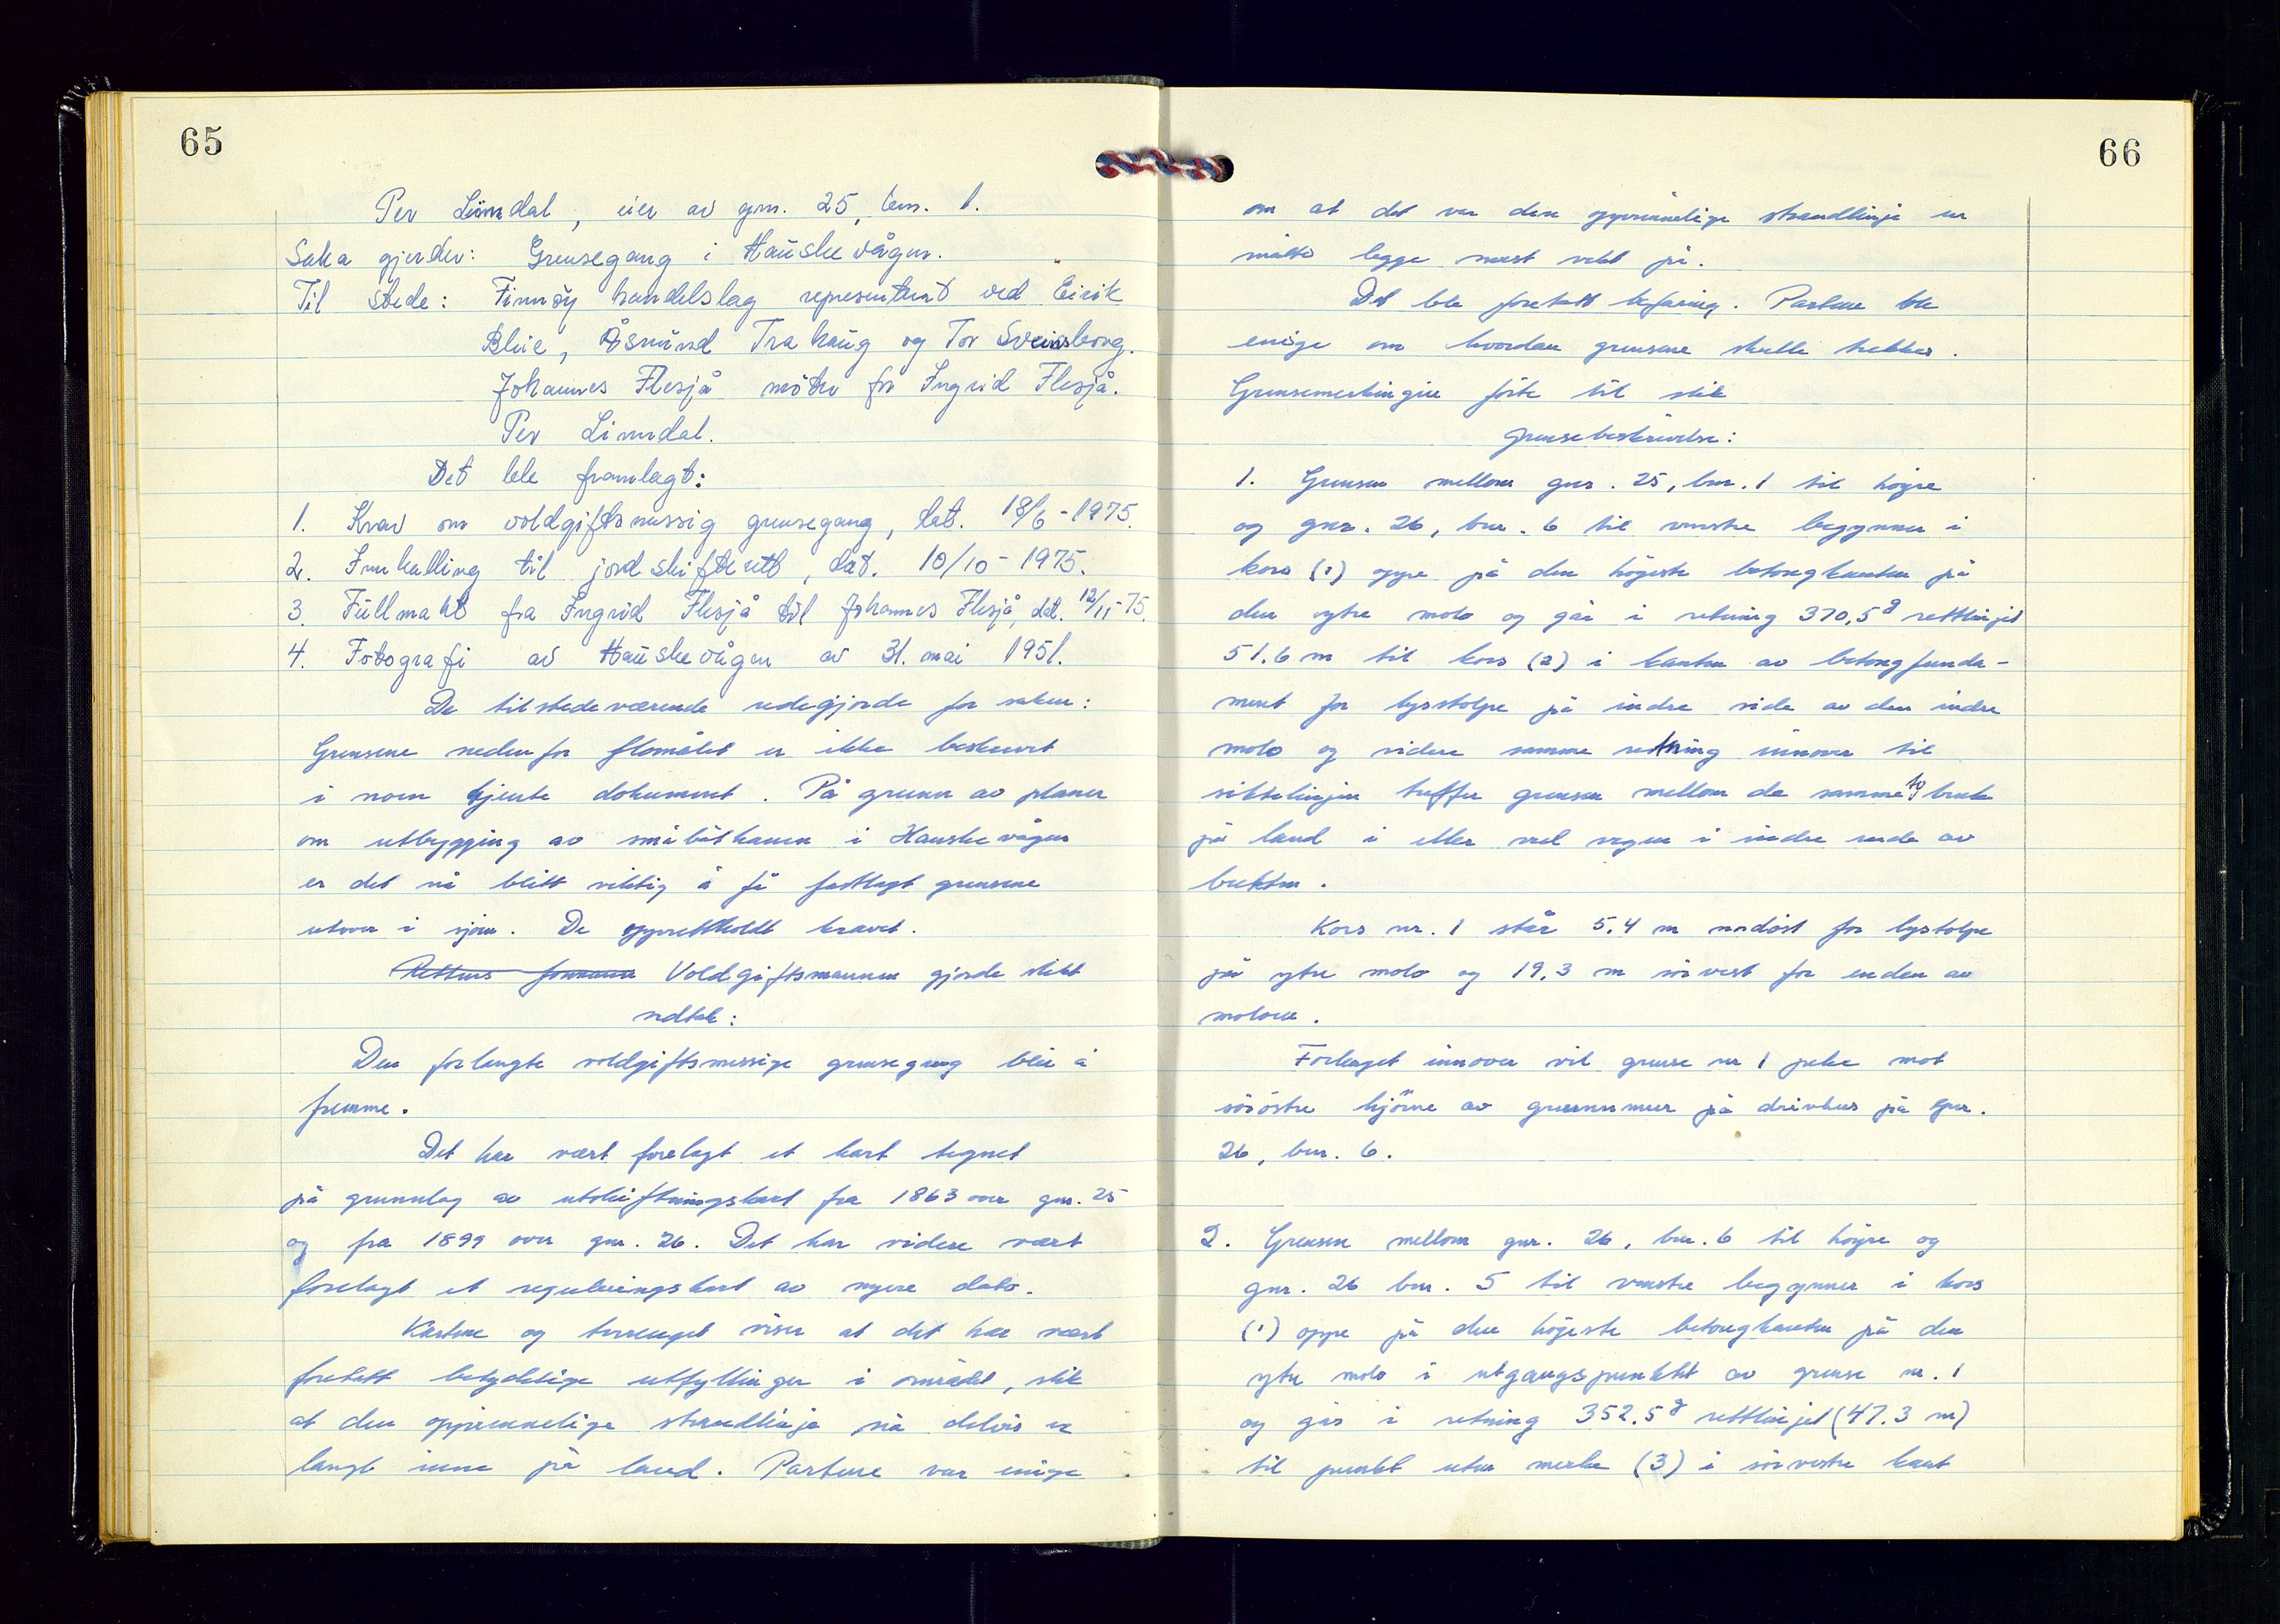 65
Per Linndal, eier av gnr. 25, bnr. 1.
Saka gjelder: Grensegang i Hauskevågen.
Til stede: Finnøy handelslag representert ved Eirik
Blie, Åsmund Trahaug og Tor Sveinsborg.
Johannes Flesjå møter for Ingrid Flesjå.
Per Linndal.
Det ble framlagt:
1. Krav om voldgiftsmessig grensegang, dat. 18/6-1975.
2. Innkalling til jordskifterett, dat. 10/10-1975.
3. Fullmakt fra Ingrid Flesjå til Johannes Flesjå, dat. 12/11-75.
4. Fotografi av Hauskevågen av 31. mai 1951.
De tilstedeværende redegjorde for saken:
Grensene nedenfor flomålet er ikke beskrevet
i noen kjente dokument. På grunn av planer
om utbygging av småbåthavn i Hauskevågen
er det nå blitt viktig å få fastlagt grensene
utover i sjøen. De opprettholdt kravet.
Rettens formann Voldgiftsmannen gjorde slikt
vedtak:
Den forlangte voldgiftsmessige grensegang blir å
fremme.
Det har vært forelagt et kart tegnet
på grunnlag av utskiftningskart fra 1863 over gnr. 25
og fra 1899 over gnr. 26. Det har videre vært
forelagt et reguleringskart av nyere dato.
Kartene og terrenget viser at det har vært
foretatt betydelige utfyllinger i området, slik
at den opprinnelige strandlinje nå delvis er
langt inne på land. Partene var enige
66
om at det var den opprinnelige strandlinje en
måtte legge mest vekt på.
Det ble foretatt befaring. Partene ble
enige om hvordan grensene skulle trekkes.
Grensemerkingen førte til slik
grensebeskrivelse:
1. Grensen mellom gnr. 25, bnr. 1 til høyre
og gnr. 26, bnr. 6 til venstre begynner i
kors (1) oppe på den høgeste betongkanten på
den ytre molo og går i retning 370,5g rettlinjet
51.6 m til kors (2) i kanten av betongfunda-
ment for lysstolpe på indre side av den indre
molo og videre samme retning innover til
siktelinjen treffer grensen mellom de samme to bruk
på land i eller ved vegen i indre ende av
bukten.
Kors nr. 1 står 5.4 m nordøst for lystolpe
på ytre molo og 19.3 m sørvest for enden av
moloen.
Forlenget innover vil grense nr 1 peke mot
sørøstre hjørne av grunnmur på drivhus på gnr.
26, bnr. 6.
2. Grensen mellom gnr. 26, bnr. 6 til høyre og
gnr. 26 bnr. 5 til venstre begynner i kors
(1) oppe på den høgeste betongkanten på den
ytre molo i utgangspunktet av grense nr. 1
og går i retning 352.5g rettlinjet (47.3 m)
til punkt uten merke (3) i sørvestre kant